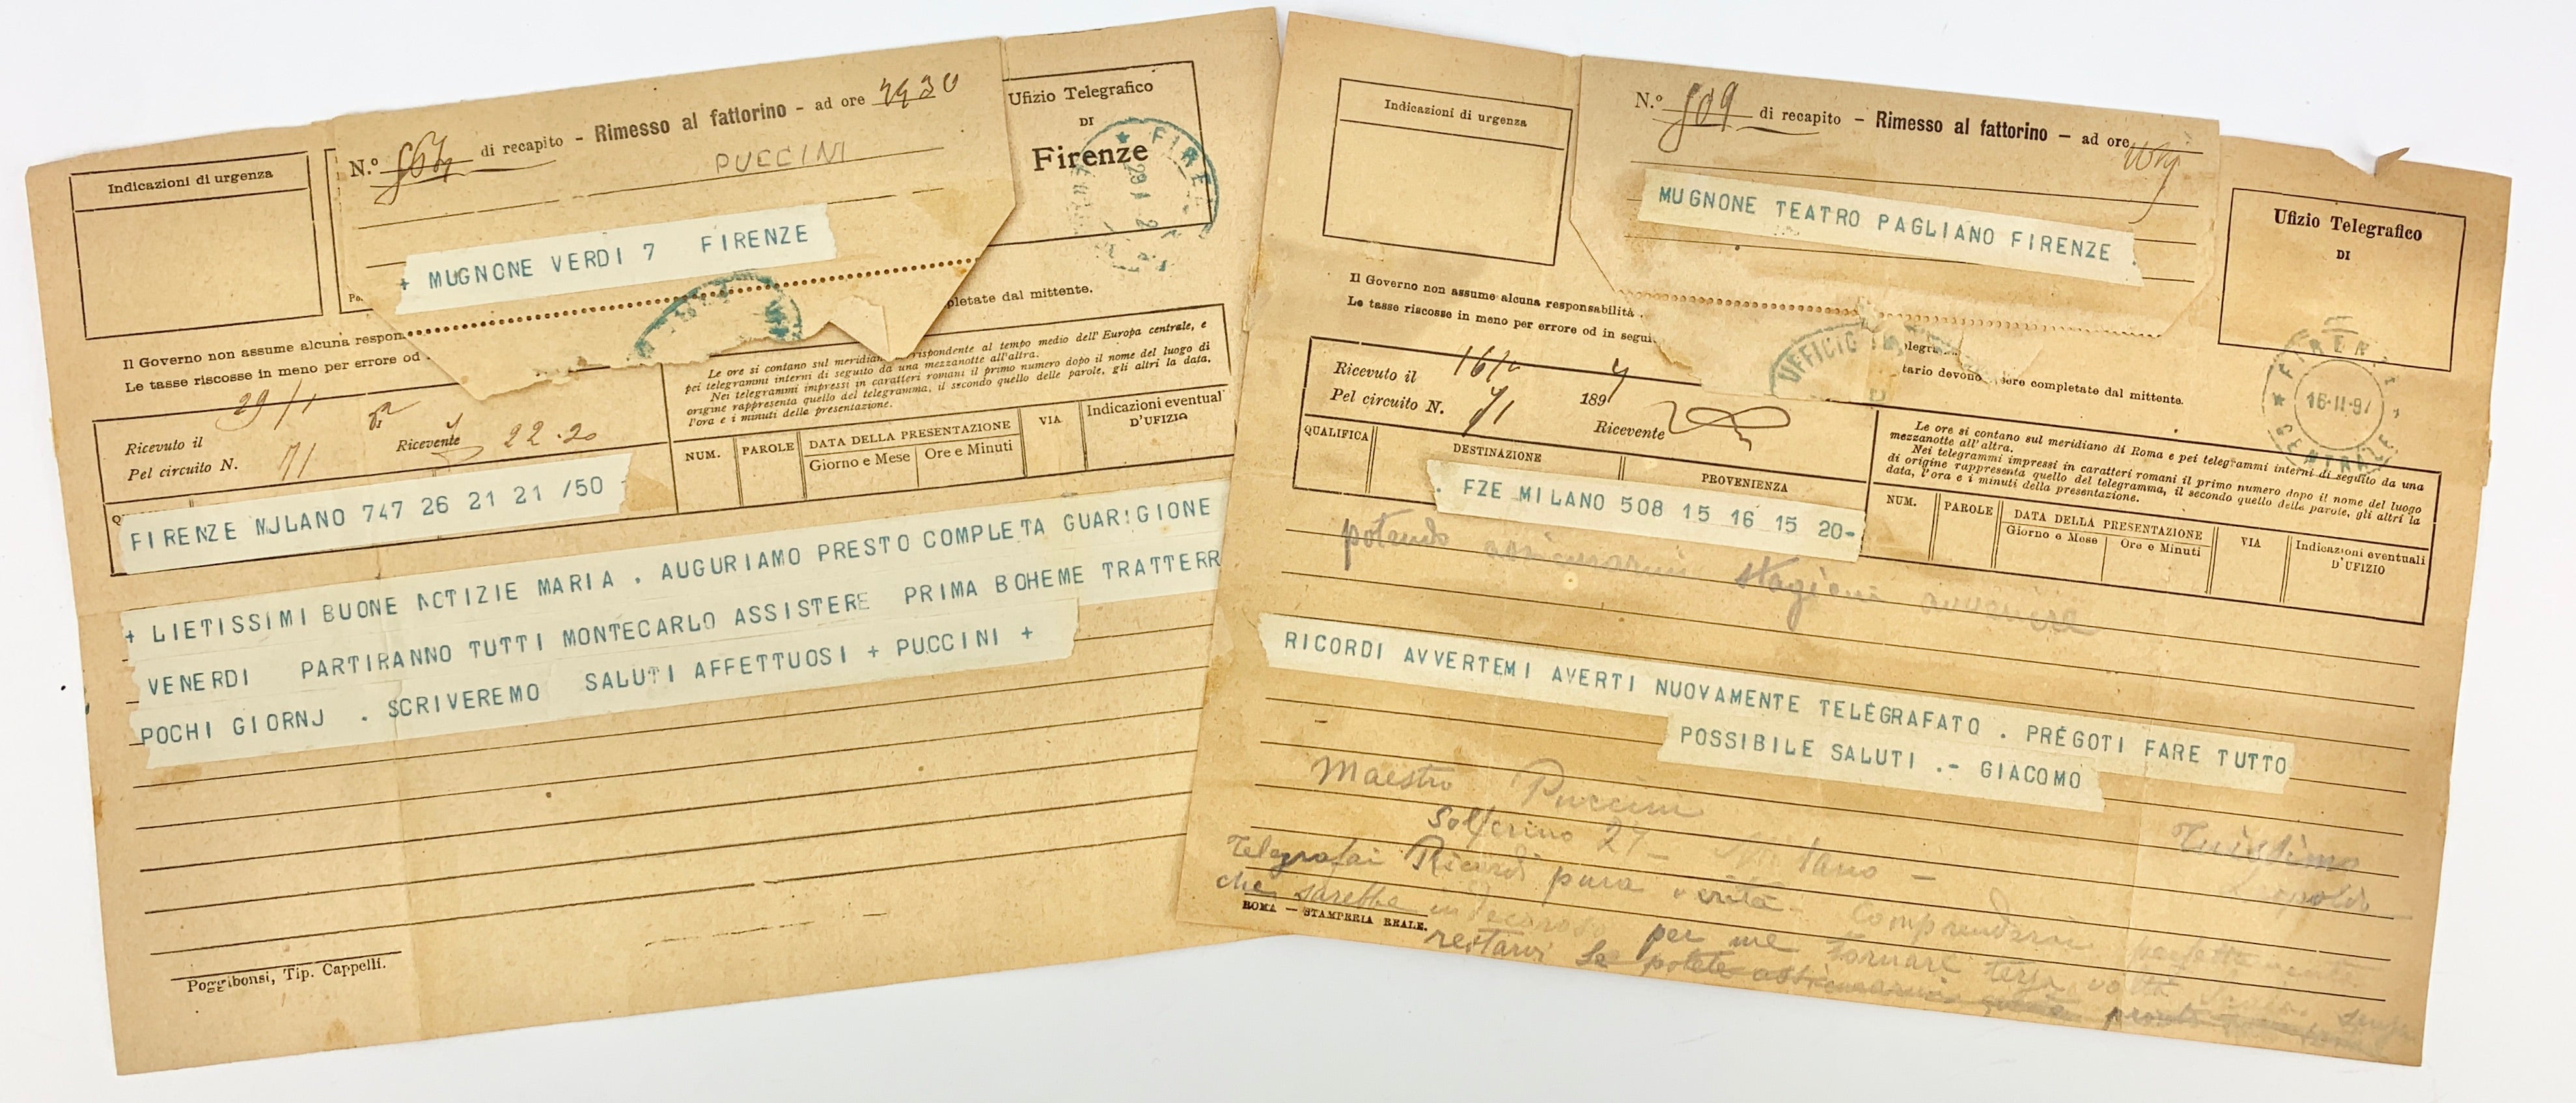 Indicazioni di urgenza
N.º di recapito - Rimesso al fattorino - ad ore
PUCCINI
+ MUGNONE VERDI 7 FIRENZE
Ufizio Telegrafico
DI
Firenze
FIRE
Il Governo non assume alcuna respon
Le tasse riscosse in meno per errore od
pletate dal mittente.
Ricevuto il 29/1
Pel circuito N. 71 Ricevente 22.20
Le ore si contano sul meridian rispondente al tempo medio dell'Europa centrale, e
pei telegrammi interni di seguito da una mezzanotte all'altra.
Nei telegrammi impressi in caratteri romani il primo numero dopo il nome del luogo di
origine rappresenta quello del telegramma, il secondo quello delle parole, gli altri la data,
l'ora e i minuti della presentazione.
NUM. PAROLE DATA DELLA PRESENTAZIONE VIA Indicazioni eventual
Giorno e Mese Ore e Minuti D'UFIZIO
FIRENZE MJLANO 747 26 21 21 /50
+ LIETISSIMI BUONE NCTIZIE MARIA . AUGURIAMO PRESTO COMPLETA GUARIGIONE
VENERDI PARTIRANNO TUTTI MONTECARLO ASSISTERE PRIMA BOHEME TRATTERR
POCHI GIORNJ . SCRIVEREMO SALUTI AFFETTUOSI + PUCCINI +
Poggibonsi, Tip. Cappelli.
Indicazioni di urgenza
N.º 509 di recapito - Rimesso al fattorino - ad ore
MUGNONE TEATRO PAGLIANO FIRENZE .
Ufizio Telegrafico
DI
Il Governo non assume alcuna responsabilità
Le tasse riscosse in meno per errore od in segui
UFFICIO
telegra
tario devono essere completate dal mittente.
FIRENZE
16-II-97
CENTRALE
Ricevuto il 16/2 1897
Pel circuito N. 71 Ricevente
Le ore si contano sul meridiano di Roma e pei telegrammi interni di seguito da una
mezzanotte all'altra.
Nei telegrammi impressi in caratteri romani il primo numero dopo il nome del luogo
di origine rappresenta quello del telegramma, il secondo quello delle parole, gli altri la
data, l'ora e i minuti della presentazione.
QUALIFICA DESTINAZIONE PROVENIENZA NUM. PAROLE DATA DELLA PRESENTAZIONE VIA Indicazioni eventuali
Giorno e Mese Ore e Minuti D'UFIZIO
. FZE MILANO 508 15 16 15 20-
potendo assicurarmi stagioni avvenire
RICORDI AVVERTEMI AVERTI NUOVAMENTE TELEGRAFATO . PREGOTI FARE TUTTO
POSSIBILE SALUTI .- GIACOMO
Maestro Puccini
Solferino 27 - Milano -
Telegrafai Ricordi pura verità. Comprenderai perfettamente
che sarebbe indecoroso per me tornare terza volta Scala senza
restarvi se potete assicurarmi
Tuissimo
Leopoldo
ROMA — STAMPERIA REALE.